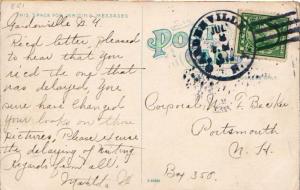 THIS SPACE FOR WRITING MESSAGES
Gardenville N.Y.
Rec'd letter, pleased
to hear that you
rec'd the one that
was delayed, you
sure have changed
your looks on those
pictures. Please excuse
the delaying of writing
regards from all.
Po
JUL
N.Y.
Corporal
Portsmouth
N. H.
Box 350.